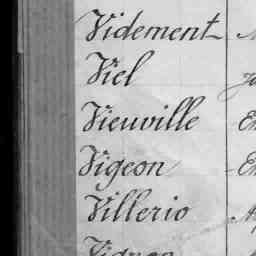 Videment
Viel
Vieuville
Vigeon
Villerio